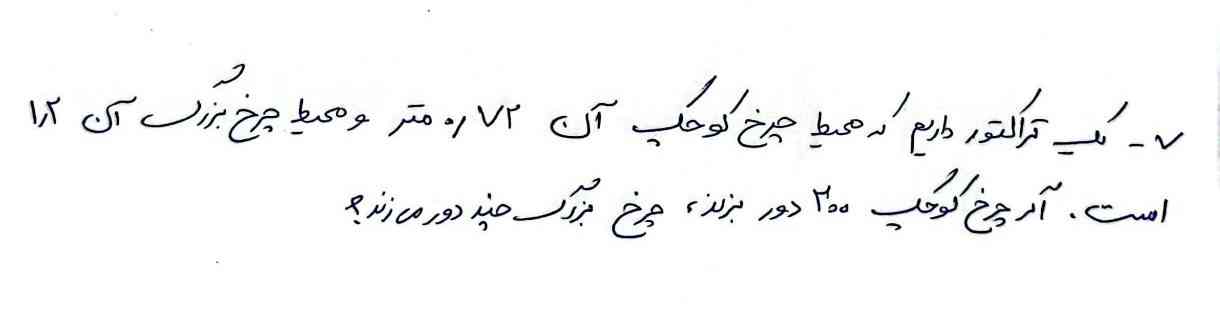 ۷- یک تراکتور داریم که محیط چرخ کوچک آن ۰٫۷۲ متر و محیط چرخ بزرگ آن ۱٫۲
است. اگر چرخ کوچک ۲۰۰ دور بزند، چرخ بزرگ چند دور می‌زند؟